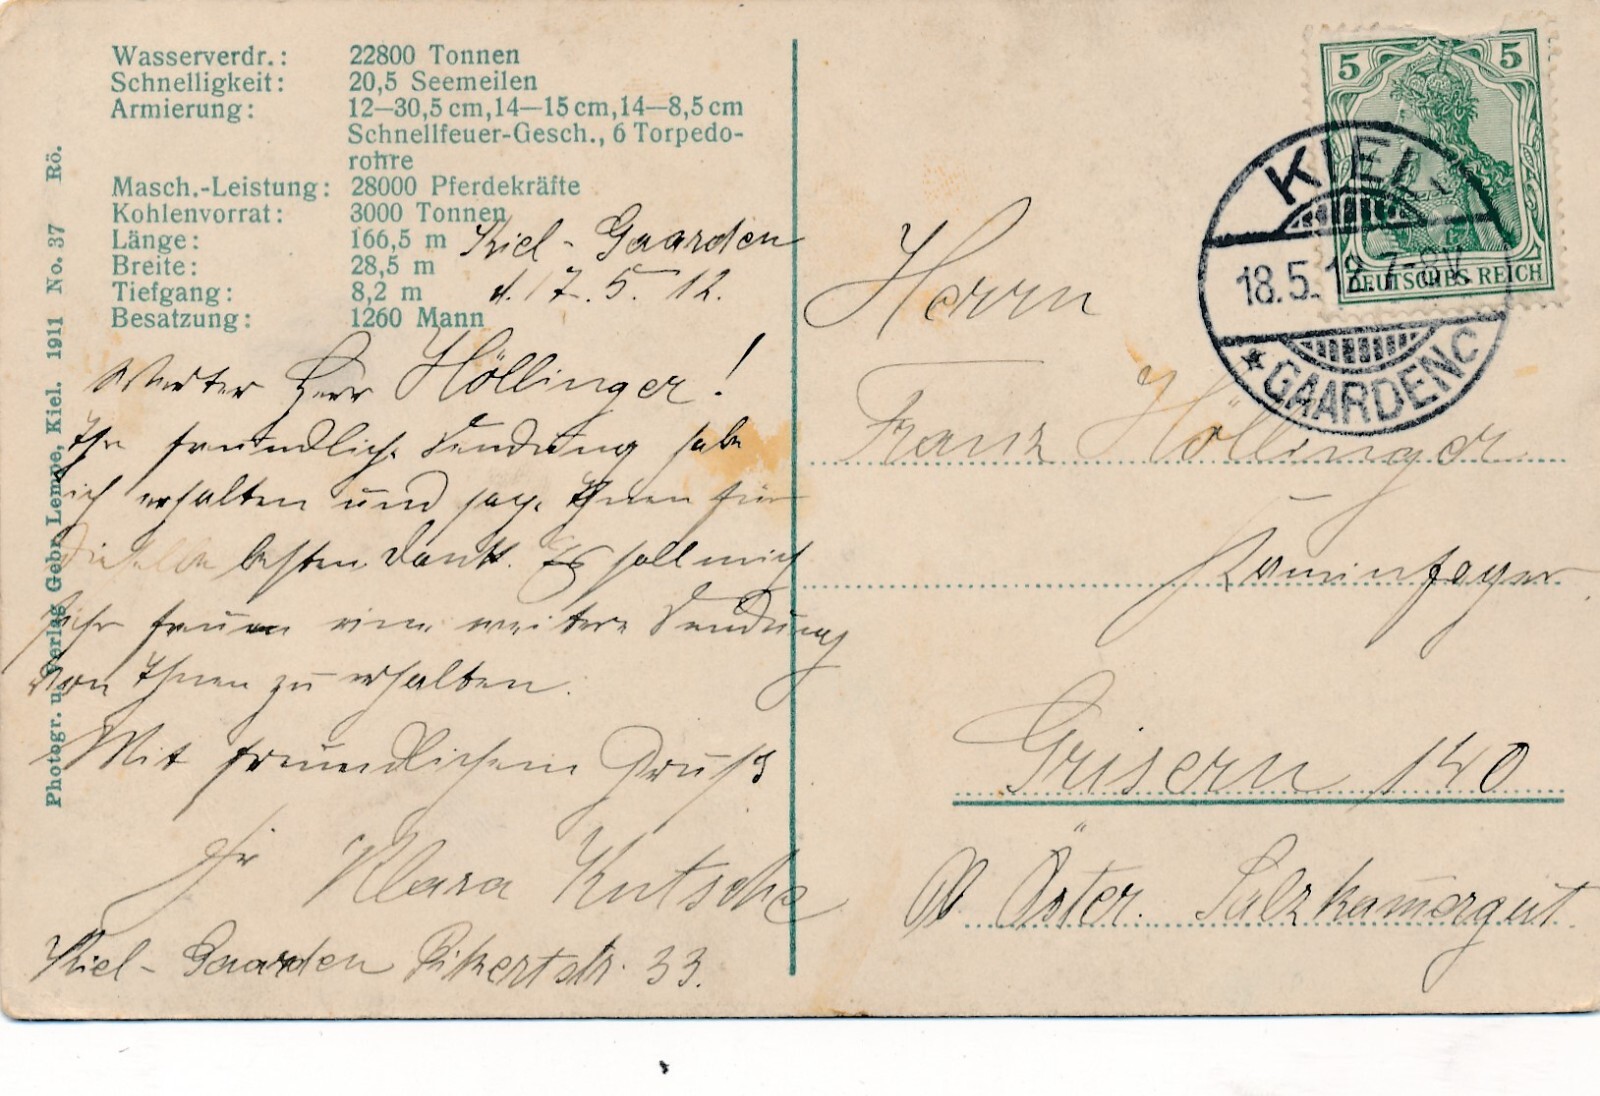 Wasserverdr.: 22800 Tonnen
Schnelligkeit: 20,5 Seemeilen
Armierung: 12—30,5 cm, 14—15 cm, 14—8,5 cm
Schnellfeuer-Gesch., 6 Torpedo-
rohre
Masch.-Leistung: 28000 Pferdekräfte
Kohlenvorrat: 3000 Tonnen
Länge: 166,5 m
Breite: 28,5 m
Tiefgang: 8,2 m
Besatzung: 1260 Mann
Photogr. u. Verlag Gebr. Lempe, Kiel. 1911 No. 37 Rö.
Kiel - Gaarden
d. 17. 5. 12.
Werter Herr Höllinger!
Ihre freundliche Sendung habe
ich erhalten und sage Ihnen für
dieselbe besten Dank. Es soll mich
sehr freuen eine weitere Sendung
von Ihnen zu erhalten.
Mit freundlichem Gruß
Klara Kutsche
Kiel - Gaarden Pikertstr. 33.
5 5
DEUTSCHES REICH
KIEL-
18.5.12. 7-8V.
* GAARDEN C
Herrn
Franz Höllinger
Kaminfeger
Grisern 140
Öster. Salzkammergut.